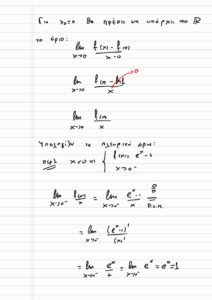 Για x₀=0 θα πρέπει να υπάρχει στο ℝ
το όριο:
lim x→0 f(x)-f(0) / x-0
lim x→0 f(x)-f(0) / x →0
lim x→0 f(x) / x
Υπολογίζω τα πλευρικά όρια:
x<0 f(x)= eˣ-1
x→0⁻
lim x→0⁻ f(x)/x = lim x→0⁻ eˣ-1 / x 0/0 D.L.H.
= lim x→0⁻ (eˣ-1)' / (x)'
= lim x→0⁻ eˣ/1 = lim x→0⁻ eˣ = e⁰=1